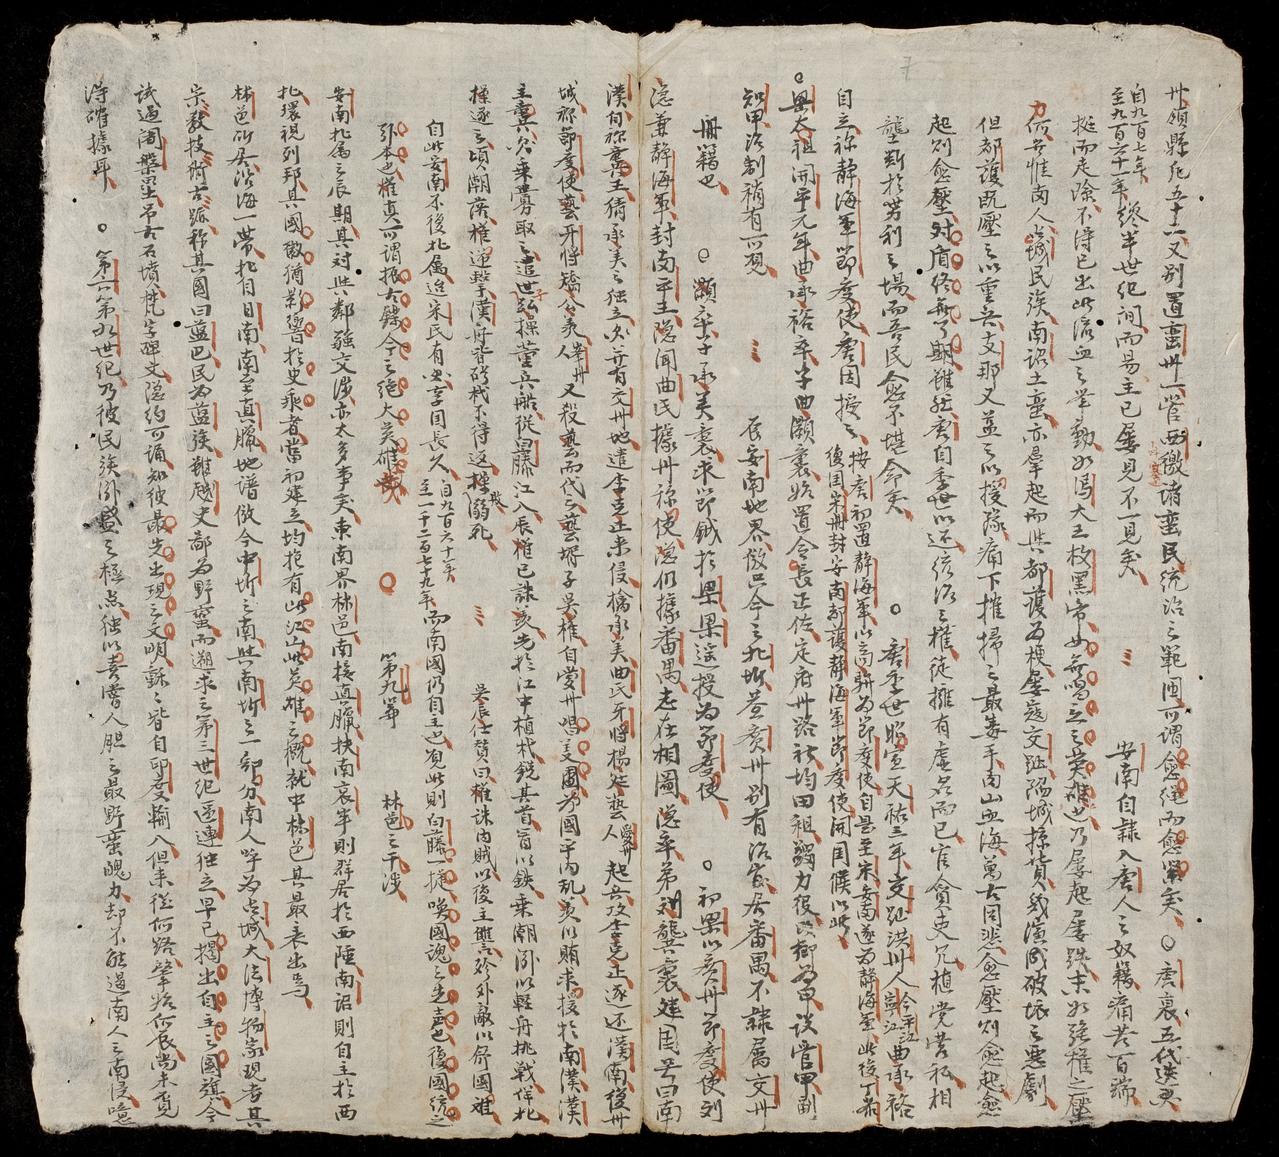 州領縣凡五十六又別置蠻州一管西徼諸蠻民統治之範圍可謂愈繩而愈緊矣 唐衰五代迭興
自九百七年至九百六十一年終半世紀間而易主已屢見不一見矣 安南自隸入唐人之奴籍痛苦百端
挺而走險不得已出此流血之舉動如馮大王枚黑帝如之英雄世乃屢起屢跌末如強權之壓
力何苦惟南人城民族南詔土蠻亦群起而與都護為梗屢寇交趾陷城掠貨我演成破壞之悲劇
但都護既壓之以重兵支那又益之以援隊痛下摧掃之最毒手肉山血海萬古同悲愈壓則愈起愈
起則愈壓矛盾終無了期雖然唐自季世以還統治之權徒擁有虛名而已官貪吏冗植党營私相
壟斷於勞利之場而吾民愈不堪命矣 唐季世昭宣天祐三年交趾洪州人今平江寧江曲承裕
自立稱靜海軍節度使唐因授之按唐初置靜海軍以高駢為節度使自是至宋安南遂為靜海軍此後丁黎復國宋冊封安南都護靜海軍節度使開國候以此
梁太祖開平元年曲承裕卒子曲顥襲始置令長正佐定府州路社均田租蠲力役以御為甲設管甲副
知甲治制稍有可觀 辰安南地界倣只今之北圻並廣州別有治官居番禺不隸屬交州
冊籍也 顥卒子承美襲求節鉞於梁梁遙授為節度使 初梁以廣州節度使劉
隱兼靜海軍封南平王隱聞曲氏據州稱使隱仍據番禺志在相圖隱卒弟劉龔襲建國号曰南
漢自称帝王猜承美之独立欲并有交州地遣李克正來侵擒承美曲氏牙將楊廷藝愛州人起兵攻李克正逐还漢南復州
城称節度使藝牙將矯公羨峯州人又殺藝而代之藝壻子吳權自愛州唱義圖為國平內乱羨以賄求援於南漢漢
主龔欲乘釁取之遣世子弘操董兵船從白藤江入辰權已誅羨先於江中植杙銳其首冒以鉄乘潮漲以輕舟挑戰佯北
操逐之頃潮落權逆擊漢舟皆碍杙不得返操敗溺死 吳辰仕贊曰權誅內賊以復主讐殄外敵以舒國难
自此安南不復北属迨宋民有安享国長久自九百六十一年至一千二百七十九年而南國仍自主也覌此則白藤一捷喚國魂之先声也復國統之
引本也權真可謂振古鑠今之絕大英雄哉 第九筭 林邑之干涉
安南北属之辰期其对與鄰強交涉亦太多事矣東南界林邑南接真臘扶南哀牢則群居於西陲南詔則自主於西
北環視列邦其國徽猶影響於史乘者當初建立均抱有此江山此英雄之概就中林邑其最表出焉
林邑所居沿海一帶北自日南南至真臘地譜倣今中圻之南與南圻之一部分南人呼為占城大法博物家現考其
宗教技術古跡称其國曰藍巴民為藍族雖越史鄙為野蛮而遡求之第三世纪逓連独立早已掲出自主之國旗今
試過闍槃里吊古石墳梵字碑文隐約可誦知彼最先出現之文明種種皆自印度輸入但未從何路肇始何辰尚未覓
得確據耳 第六第九世纪乃彼民族漲盛之極点独以喜嗜人胆之最野蛮魄力却不能遏南人之南侵噫